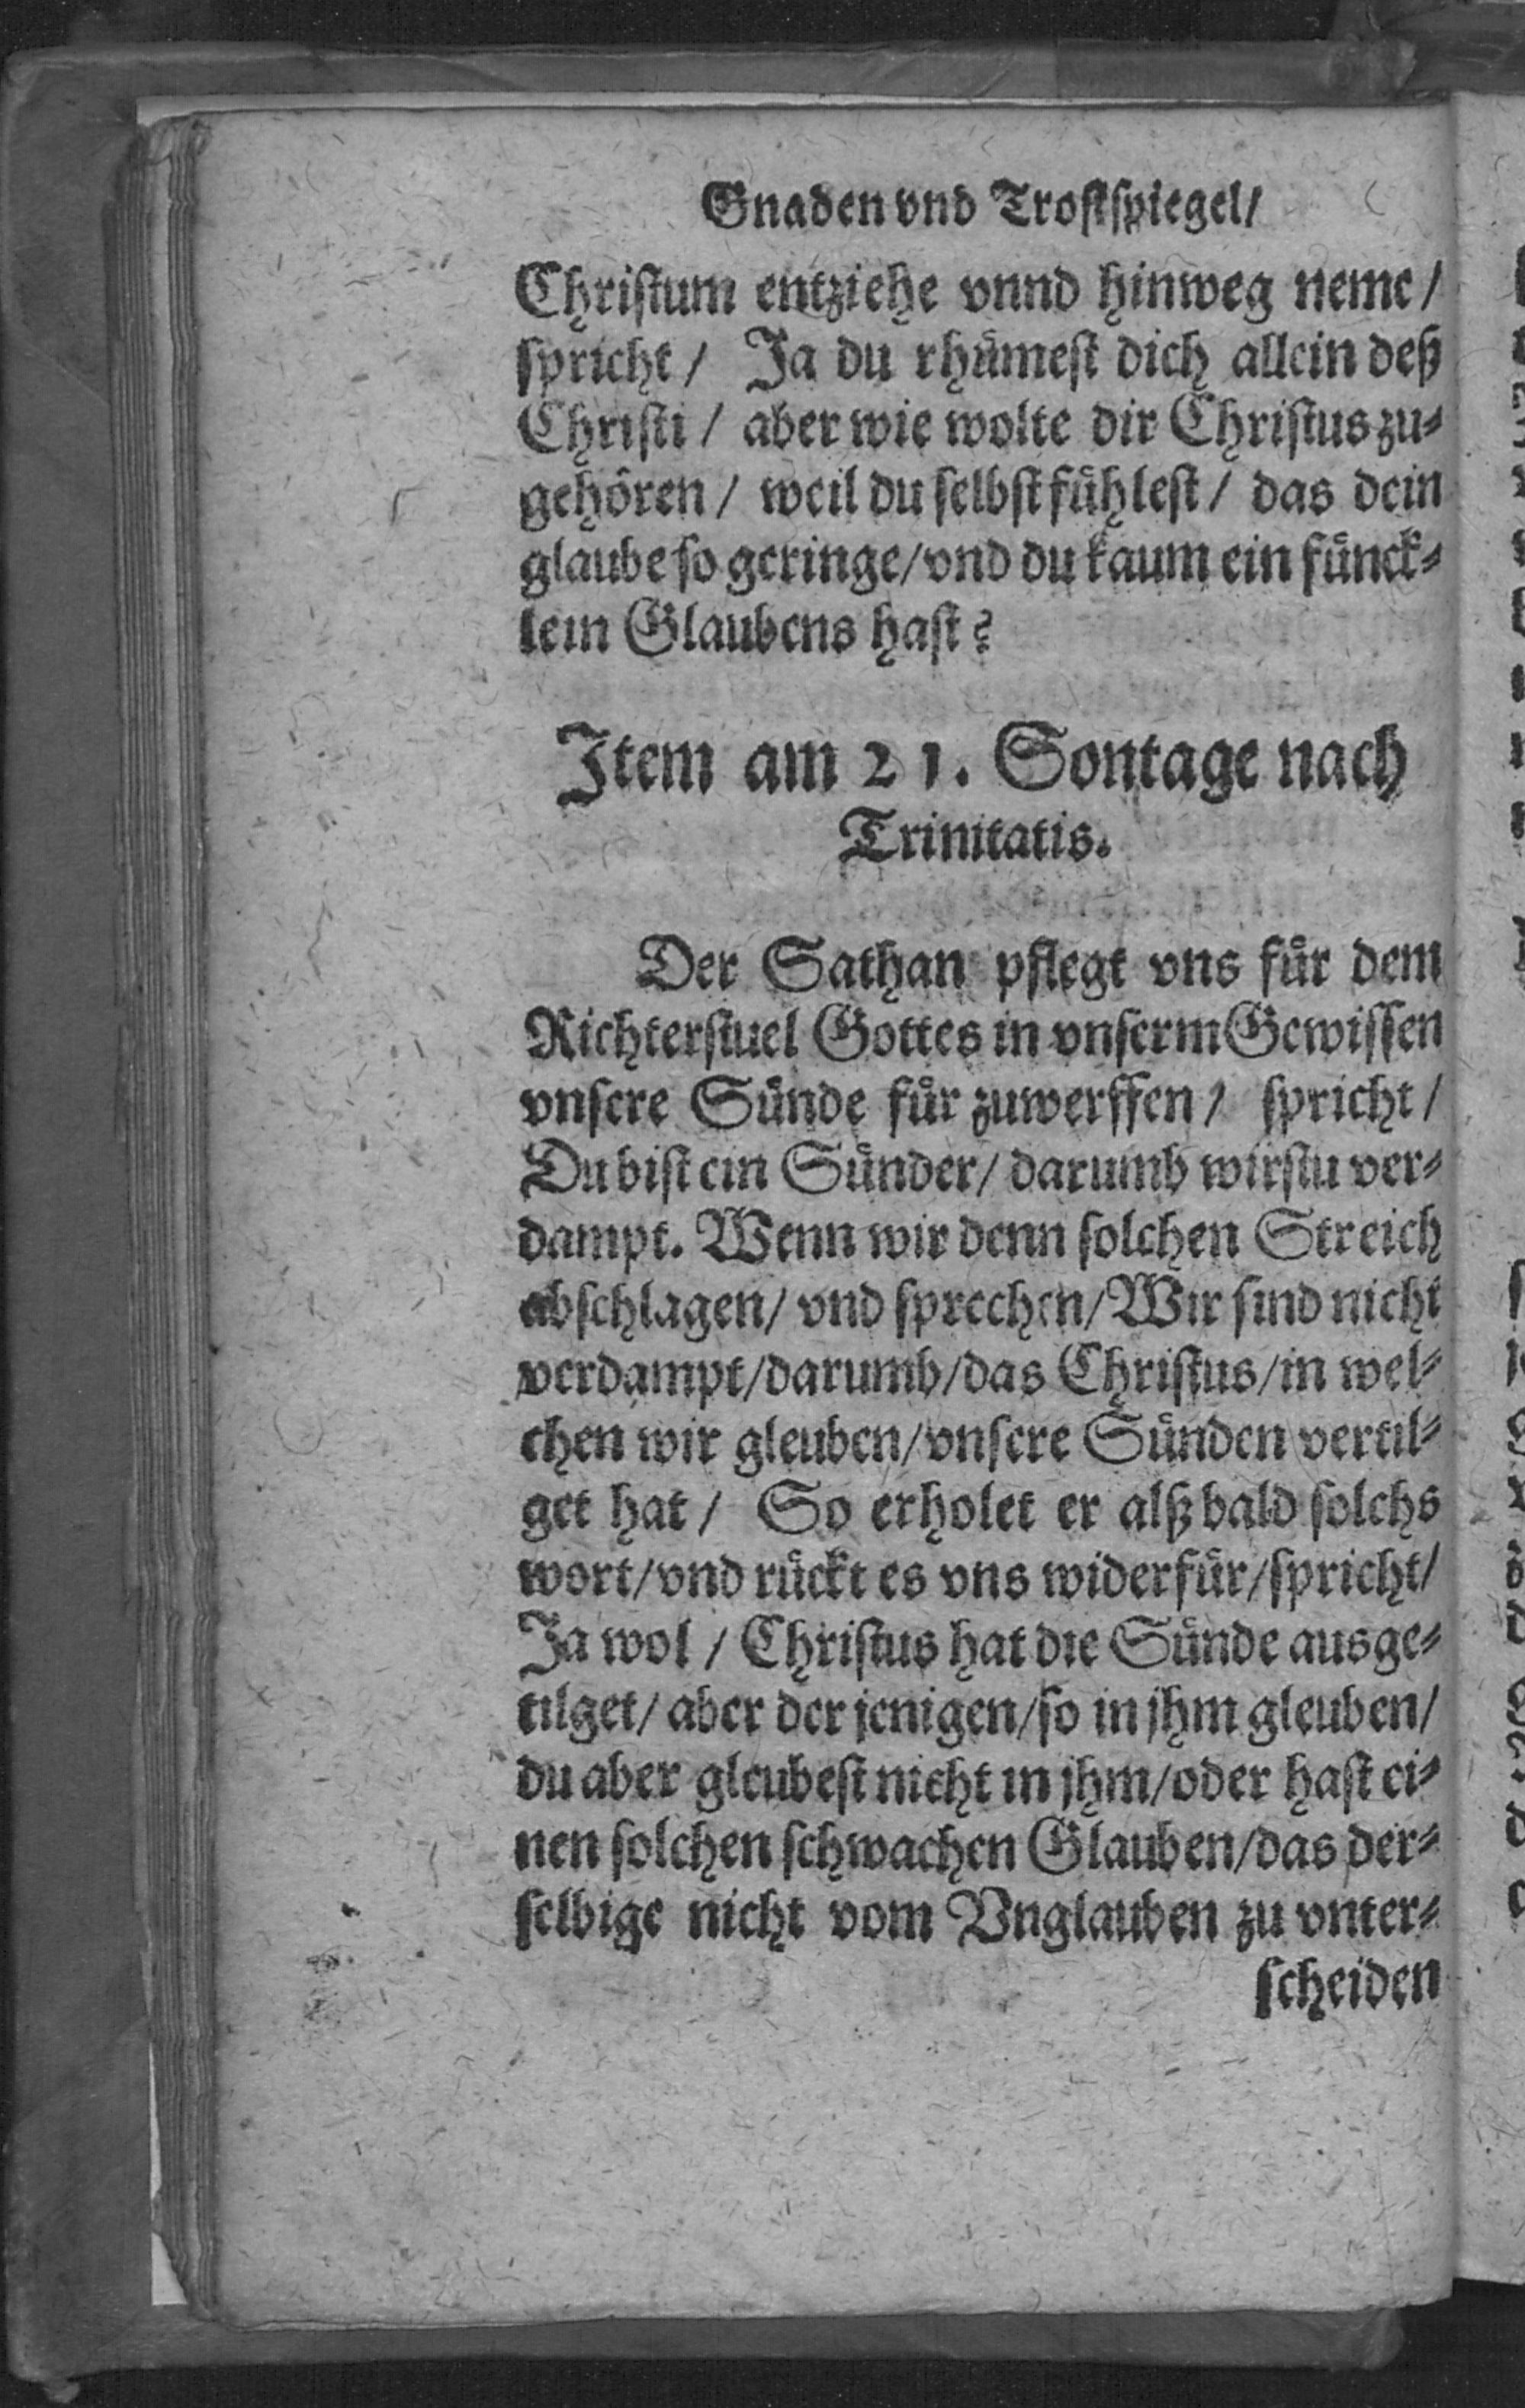 Gnaden vnd Trostspiegel/
Christum entziehe vnnd hinweg neme/
spricht/ Ja du rhümest dich allein deß
Christi/ aber wie wolte dir Christus zu⸗
gehören/ weil du selbst fühlest/ das dein
glaube so geringe/ vnd du kaum ein fünck⸗
lein Glaubens hast?
Item am 21. Sontage nach
Trinitatis.
Der Sathan pflegt vns für dem
Richterstuel Gottes in vnserm Gewissen
vnsere Sünde für zuwerffen/ spricht/
Du bist ein Sünder/ darumb wirstu ver⸗
dampt. Wenn wir denn solchen Streich
abschlagen/ vnd sprechen/ Wir sind nicht
verdampt/ darumb/ das Christus/ in wel⸗
chen wir gleuben/ vnsere Sünden vertil⸗
get hat/ So erholet er alß bald solchs
wort/ vnd rückt es vns widerfür/ spricht/
Ja wol/ Christus hat die Sünde ausge⸗
tilget/ aber der jenigen/ so in jhm gleuben/
du aber gleubest nicht in jhm/ oder hast ei⸗
nen solchen schwachen Glauben/ das der⸗
selbige nicht vom Vnglauben zu vnter⸗
scheiden